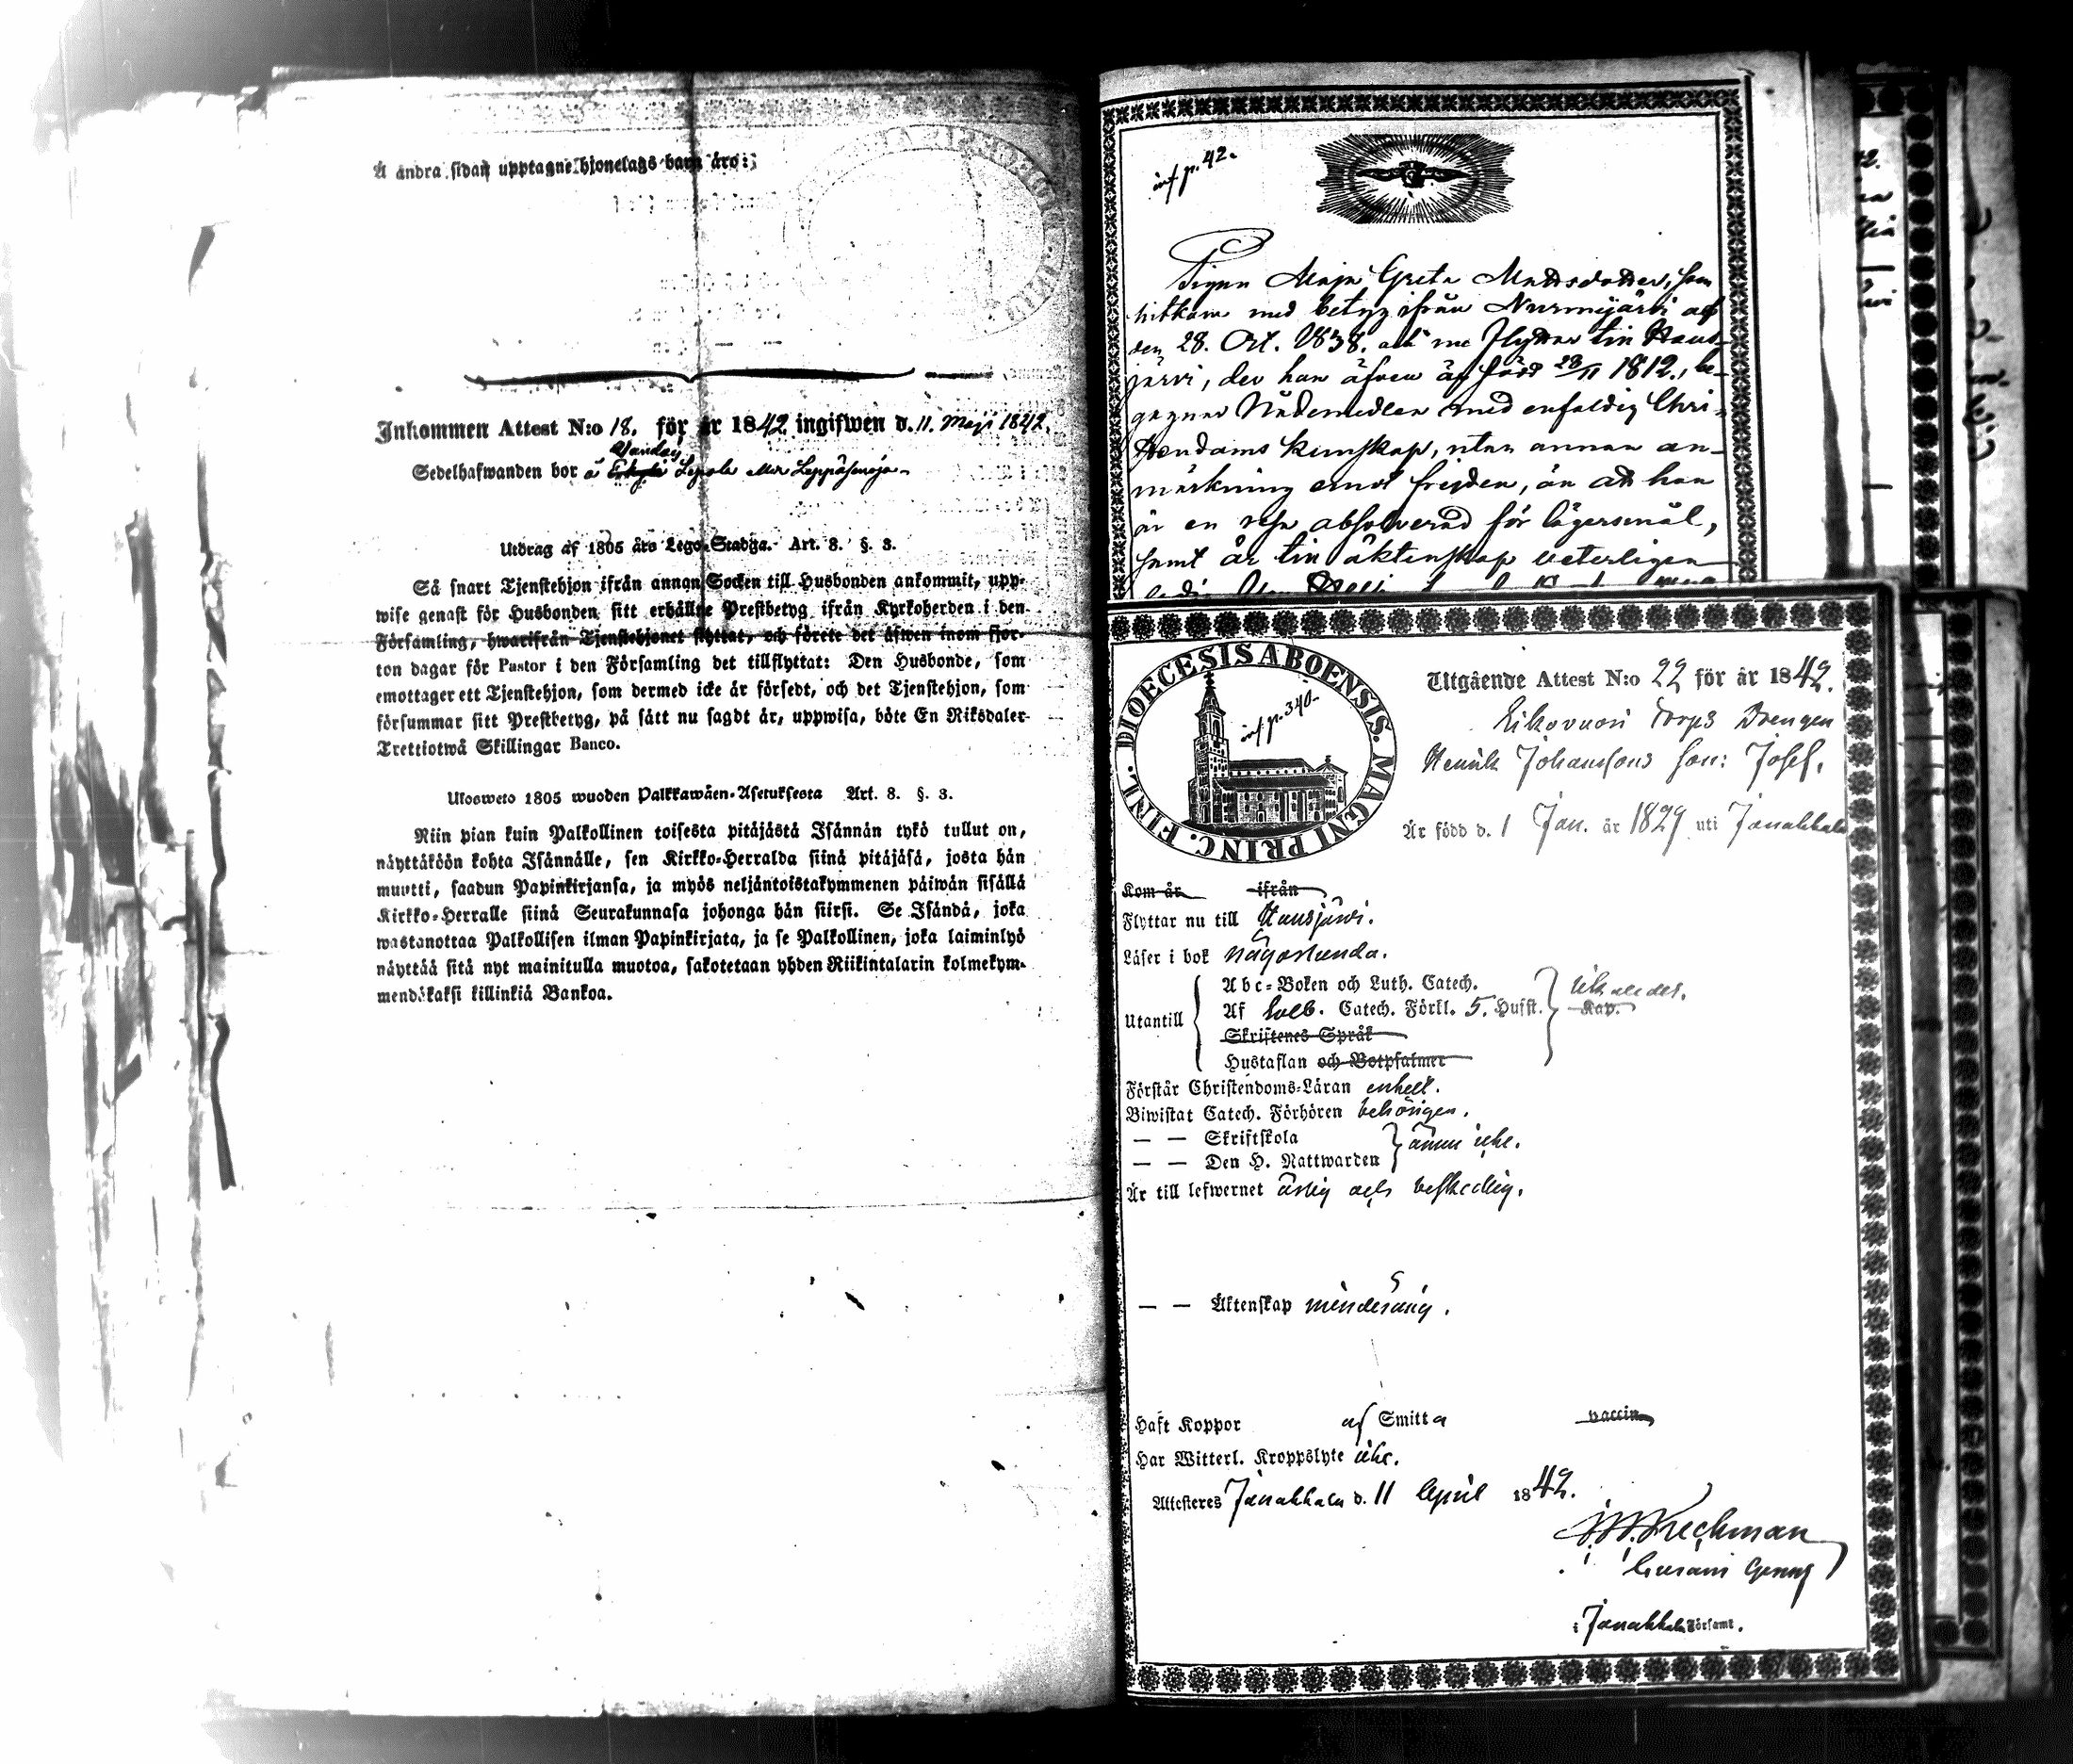 Å andra sidan upptagne hjonelags barn äro:
Inkommen Attest N:o 18. för år 1842 ingifwen d. 11. Maji 1842.
Sedelhafwanden bor å Lepola
Utdrag af 1805 års Lego-Stadga. Art. 8. §. 3.
Så snart Tjenstehjon ifrån annan Socken till Husbonden ankommit, upp-
wise genast för Husbonden sitt erhållne Prestbetyg ifrån Kyrkoherden i den
Församling, hwarifrån Tjenstehjonet flyttat, och förete det äfwen inom fjor-
ton dagar för Pastor i den Församling det tillflyttat: Den Husbonde, som
emottager ett Tjenstehjon, som dermed icke är försedt, och det Tjenstehjon, som
försummar sitt Prestbetyg, på sätt nu sagdt är, uppwisa, böte En Riksdaler
Trettiotwå Skillingar Banco.
Ulosweto 1805 wuoden Palkkawäen-Asetuksesta Art. 8. §. 3.
Niin pian kuin Palkollinen toisesta pitäjästä Isännän tykö tullut on,
näyttäköön kohta Isännälle, sen Kirkko-Herralda siinä pitäjäsä, josta hän
muutti, saadun Papinkirjansa, ja myös neljäntoistakymmenen päiwän sisällä
Kirkko-Herralle siinä Seurakunnasa johonga hän siirsi. Se Isändä, joka
wastanottaa Palkollisen ilman Papinkirjata, ja se Palkollinen, joka laiminlyö
näyttää sitä nyt mainitulla muotoa, sakotetaan yhden Riikintalarin kolmekym-
mendäkaksi killinkiä Bankoa.
inf p. 42.
Pigan Maja Greta Mattsdotter, som
hitkom med betyg ifrån Nurmijärvi af
den 28. Oct. 1838. att nu flyttar till Haus-
järvi, der hon äfven är född 23/11 1812., be-
gagnar Nådemedlen med enfaldig Chri-
stendoms kunskap, utan annan an-
märkning emot frejden, än att hon
är en resa absolverad för lägersmål,
samt är till äktenskap veterligen
DIOECESIS ABOENSIS. MAGNI PRINC. FINL.
inf p. 340.
Utgående Attest N:o 22 för år 1842.
torps Drengen
Henrik Johanssons son: Josef.
Är född d. 1 Jan. år 1829 uti Janakkala
Kom år ifrån
Flyttar nu till Hausjärvi.
Läser i bok någorlunda.
Utantill
Abc-Boken och Luth. Catech.
Af Sveb. Catech. Förkl. 5. Hufst. Kap.
Skriftenes Språk
Hustaflan och Botpsalmer
Förstår Christendoms-Läran enkelt.
Biwistat Catech. Förhören behörigen.
— — Skriftskola
— — Den H. Nattwarden ännu icke.
Är till lefwernet ärlig och beskedlig.
— — Äktenskap minderårig.
Haft Koppor af Smitta vaccin
Har Witterl. Kroppslyte icke.
Attesteres Janakkala d. 11 April 1842.
i Janakkala Församl.